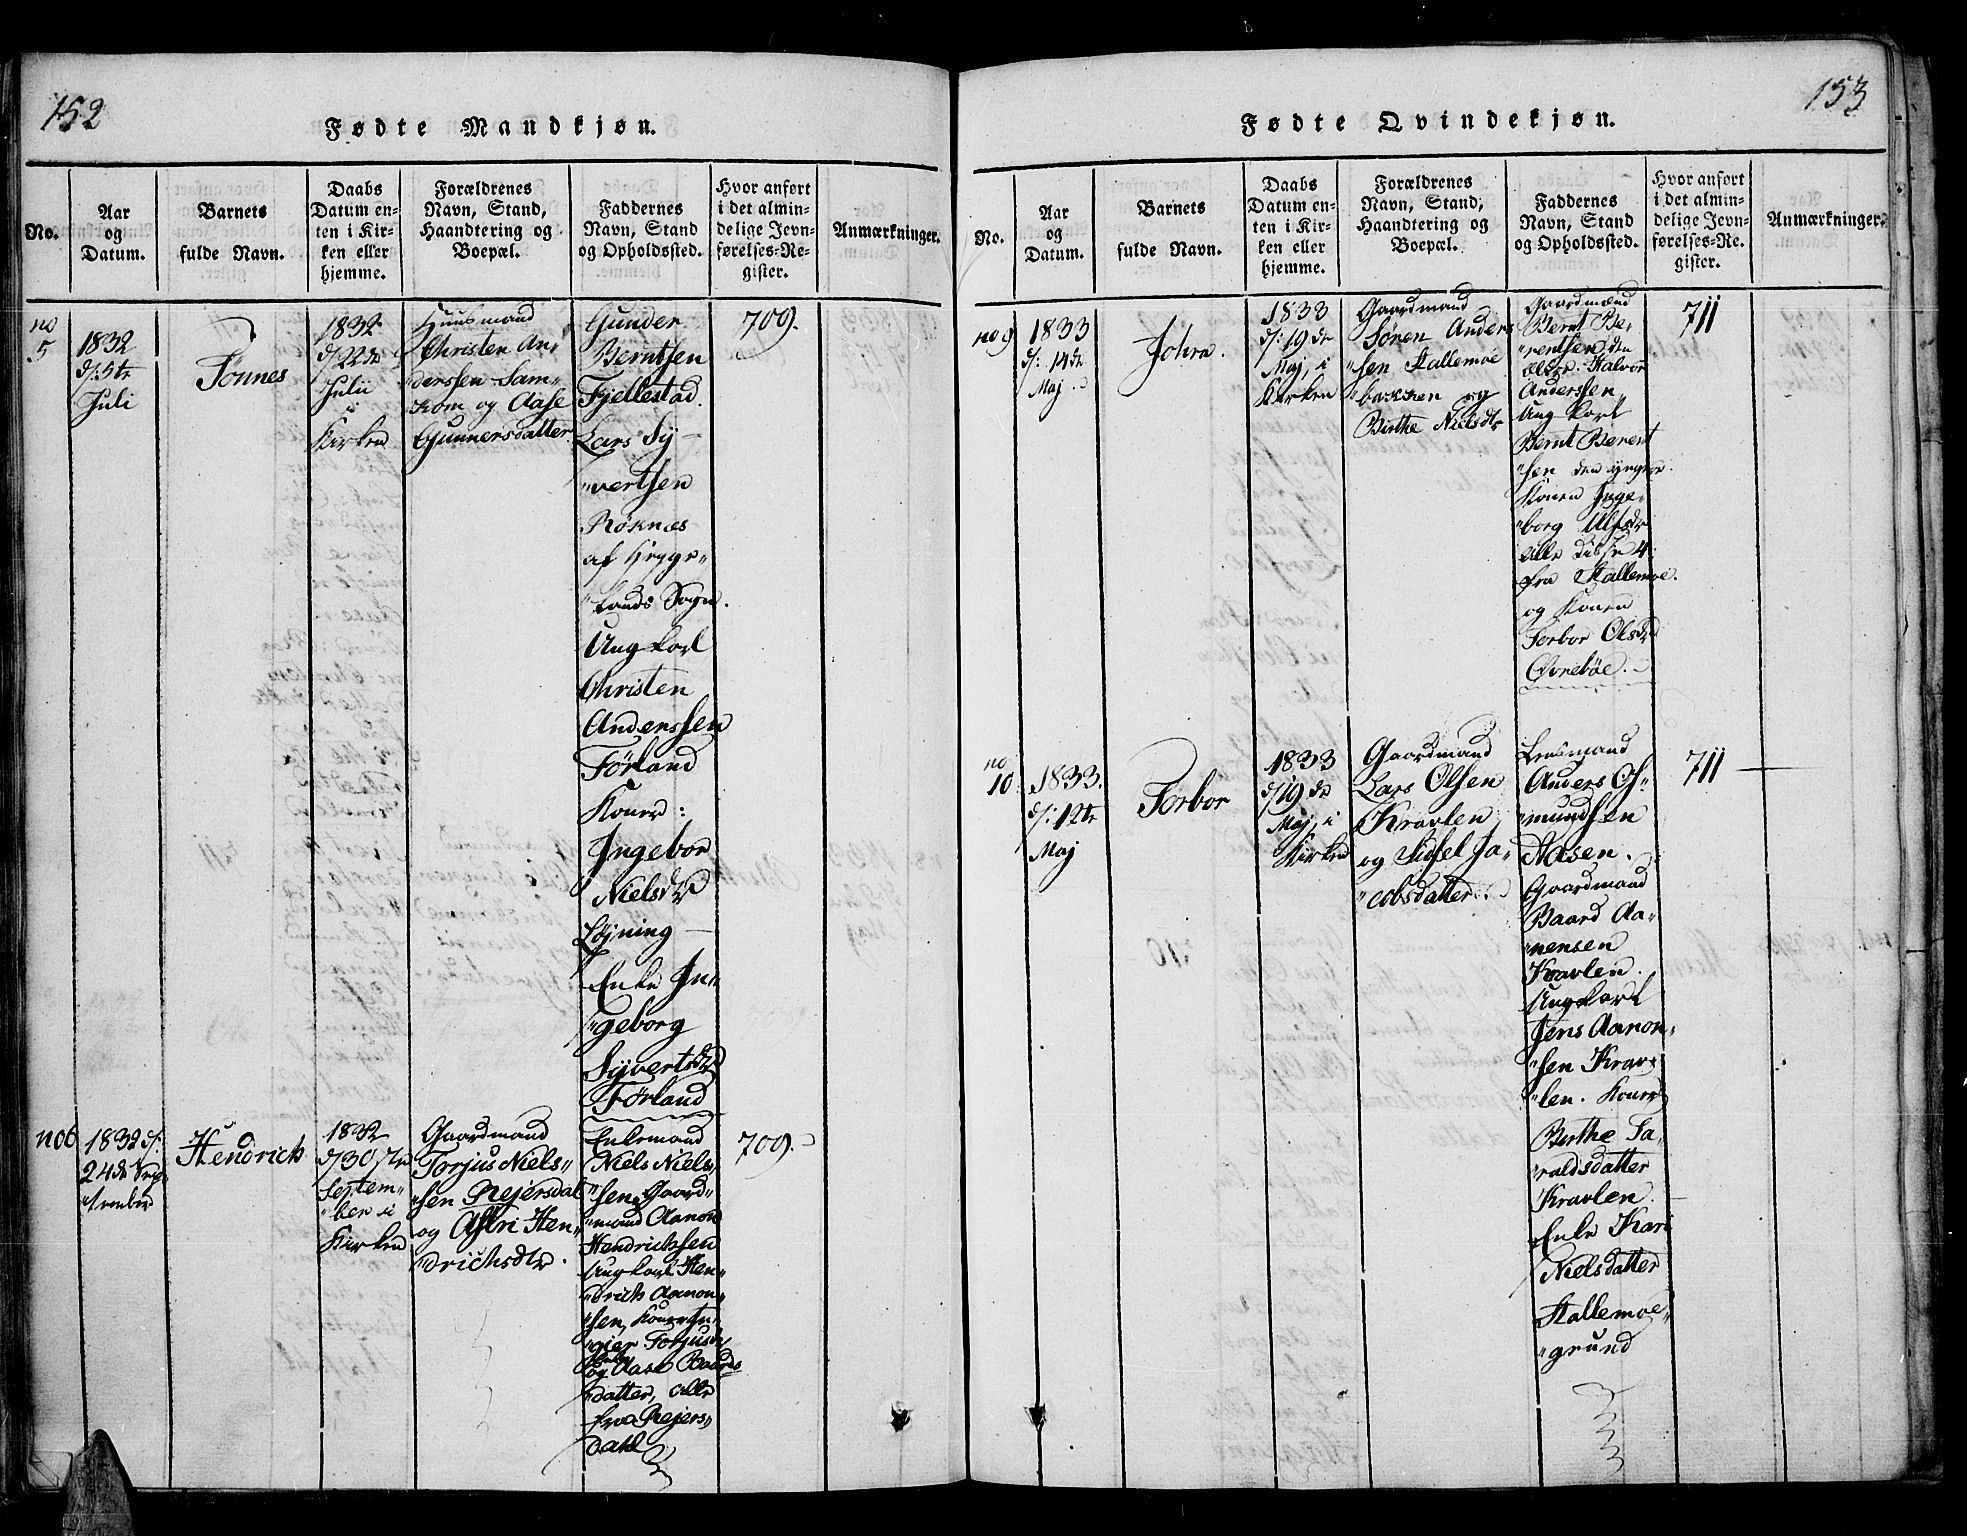 152
Fødte Mandkjøn.
No.
Aar
og
Datum.
Barnets
fulde Navn.
Daabs
Datum en-
ten i Kir-
ken eller
hjemme.
Forældrenes
Navn, Stand,
Haandtering og
Boepæl.
Faddernes
Navn, Stand
og Opholdssted.
Hvor anført
i det almin-
delige Jevn-
førelses-Re-
gister.
Anmærkninger.
no
5
1832
d: 5te
Juli
Tønnes
1832
d/22de
Julii
Kirken
Huusmand
Christen An-
derssen Sam-
kom og Aase
Gunnersdatter
Gunder
Berntsen
Fjellestad.
Lars Sy-
"vertsen
Røknæs
af Hegge"
"lands Sogn.
Ungkarl
Christen
Anderssen
Førland
Koner:
Ingebor
Nielsdtr
Løjning
Enke In"
"geborg
Syvertsdtr
Førland
709.
no6
1832 d:
24de Sep"
"tember
Hendrich
1832
d/30te
Septem"
"ber i
Kirken
Gaardmand
Torjus Niels"
"sen Rejersdal
og Astri Hen"
"drichsdtr.
Enkemand
Niels Niels"
"sen, Gaard"
"mand Aanon
Hendrichsen
Ungkarl Hen"
"drich Aanon"
"sen, Koner In"
"gier Torjusdtr
og Aase Baards
"datter, alle
fra Rejers"
dahl
709.
153
Fødte Qvindekjøn.
No.
Aar
og
Datum.
Barnets
fulde Navn.
Daabs
Datum en-
ten i Kir-
ken eller
hjemme.
Forældrenes
Navn, Stand,
Haandtering og
Boepæl.
Faddernes
Navn, Stand
og Opholdssted.
Hvor anført
i det almin-
delige Jevn-
førelses-Re-
gister.
Anmærkninger.
no 9
1833
d: 14de
Maj.
Johra.
1833
d: 19de
Maj, i
Kirken
Gaardmand
Søren Anders
"sen Stallemoe
"bakken og
Birthe Nielsdtr
Gaardmænd
Bernt Be-
"rentsen den
ældre. Halvor
Anderssen,
Ungkarl
Bernt Berent
"sen den yngre.
Konen Inge-
"borg Ulfsdtr
alle disse 4
fra Stallemoe.
og Konen
Torbor Olsdtr
Øvrebøe.
711
no
10
1833.
d: 12te
Maj
Torbor
1833
d/19de
Maj, i
Kirken
Gaardmand
Lars Olsen
Kravlen
og Sidsel Ja"
"cobsdatter.
Lensmand
Anders Os"
"mundsen
Aasen.
Gaardmand
Baard Aa-
"nensen
Kravlen.
Ungkarl
Jens Aanon"
"sen Krav"
"len. Koner
Berthe Ta"
"raldsdatter
Kravlen.
Enke Kari
Nielsdatter
Stallemoe"
"grund
711